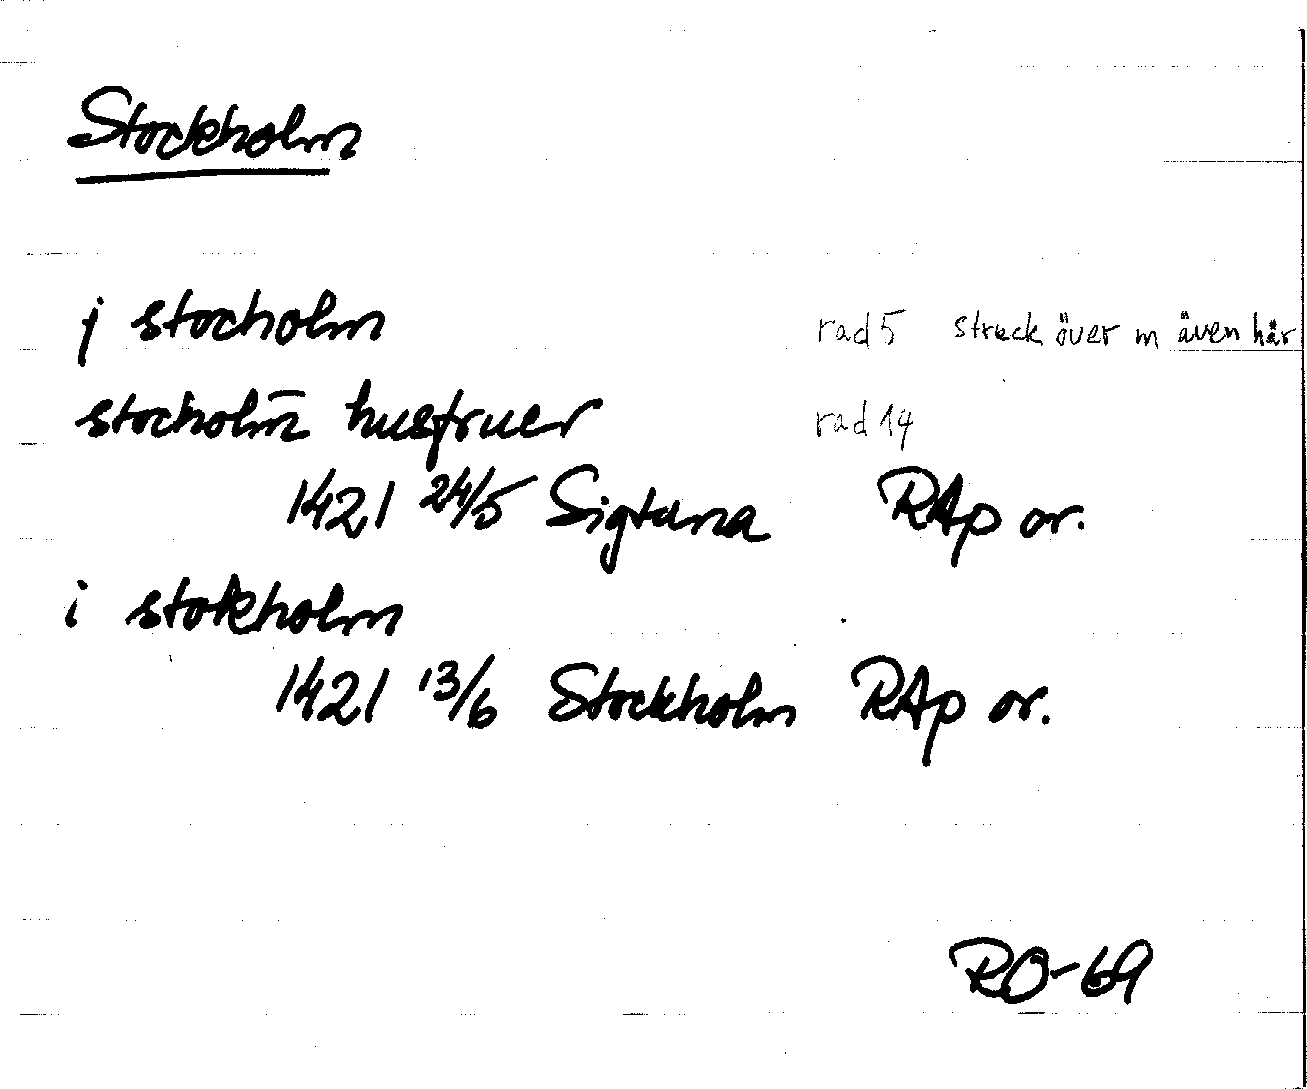 Stockholm
j stocholm rad 5 streck över m även här
stocholm̄ husfruer rad 14
1421 24/5 Sigtuna RAp or.
i stokholm
1421 13/6 Stockholm RAp or.
RO-69